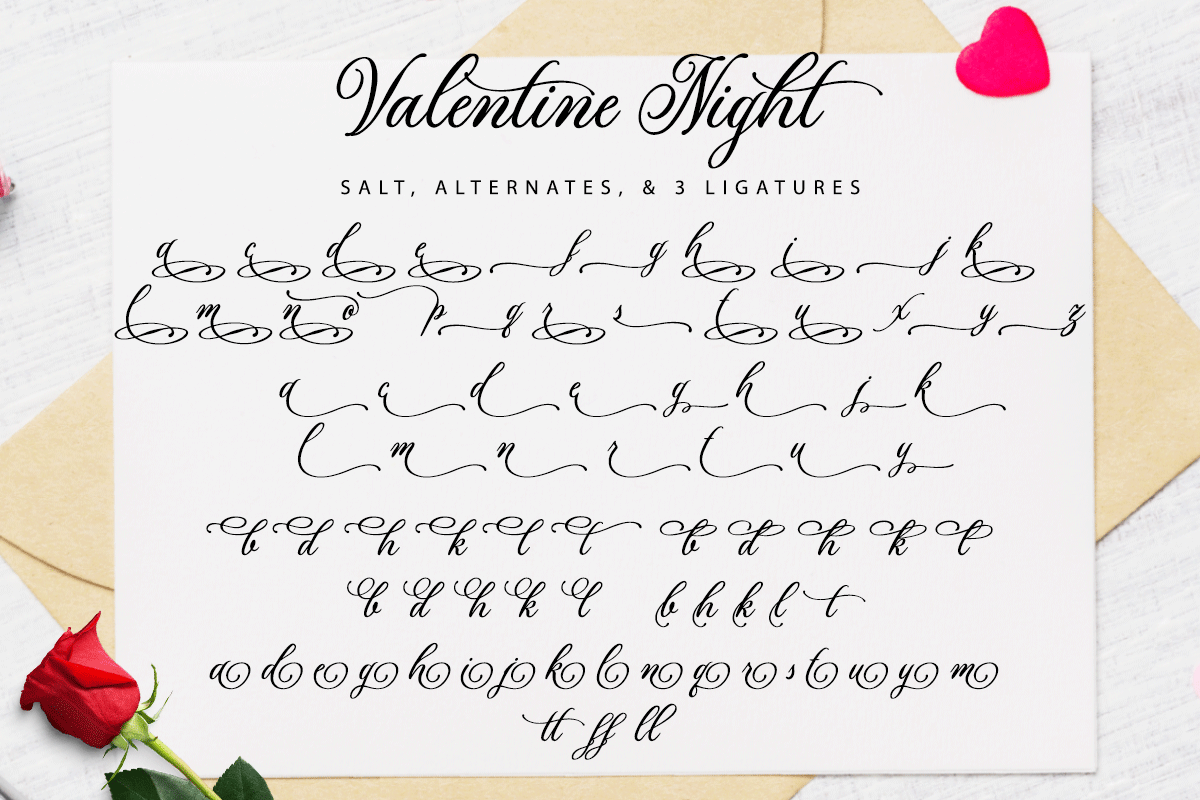 Valentine Night
SALT, ALTERNATES, & 3 LIGATURES
a c d e f g h i j k
l m n o p q r s t u x y z
a c d e g h j k
l m n r t u y
b d h k l t b d h k t
b d h k l b h k l t
a d e g h i j k l n q r s t u y m
tt ff ll